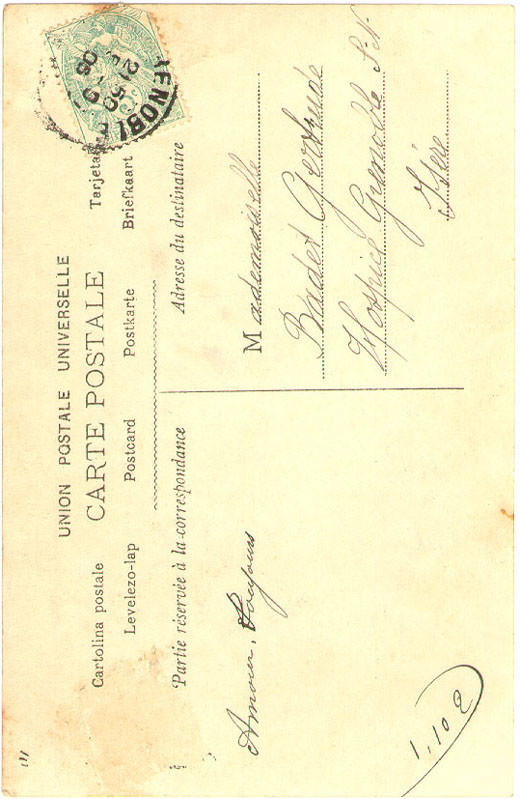 UNION POSTALE UNIVERSELLE
CARTE POSTALE
Cartolina postale
Tarjeta
Levelezo-lap Postcard Postkarte Briefkaart
Partie réservée à la correspondance
Adresse du destinataire
Amour, Toujours
Mademoiselle
Badet Gertrude
Hospice Grenoble
Isère
ENOBL
21 50
1.10 2